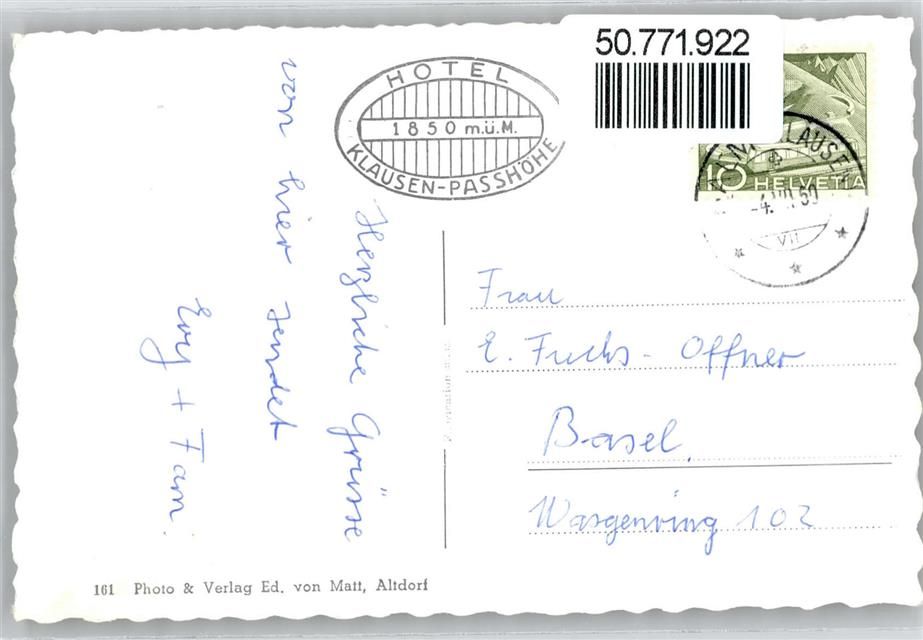 50.771.922
HOTEL
1850 m.ü.M.
KLAUSEN-PASSHÖHE
10 HELVETIA
KLAUSEN
VII
Herzliche Grüsse
von hier sendet
Evy + Fam.
Frau
E. Fuchs - Offner
Basel.
Wasgenring 102
161 Photo & Verlag Ed. von Matt, Altdorf